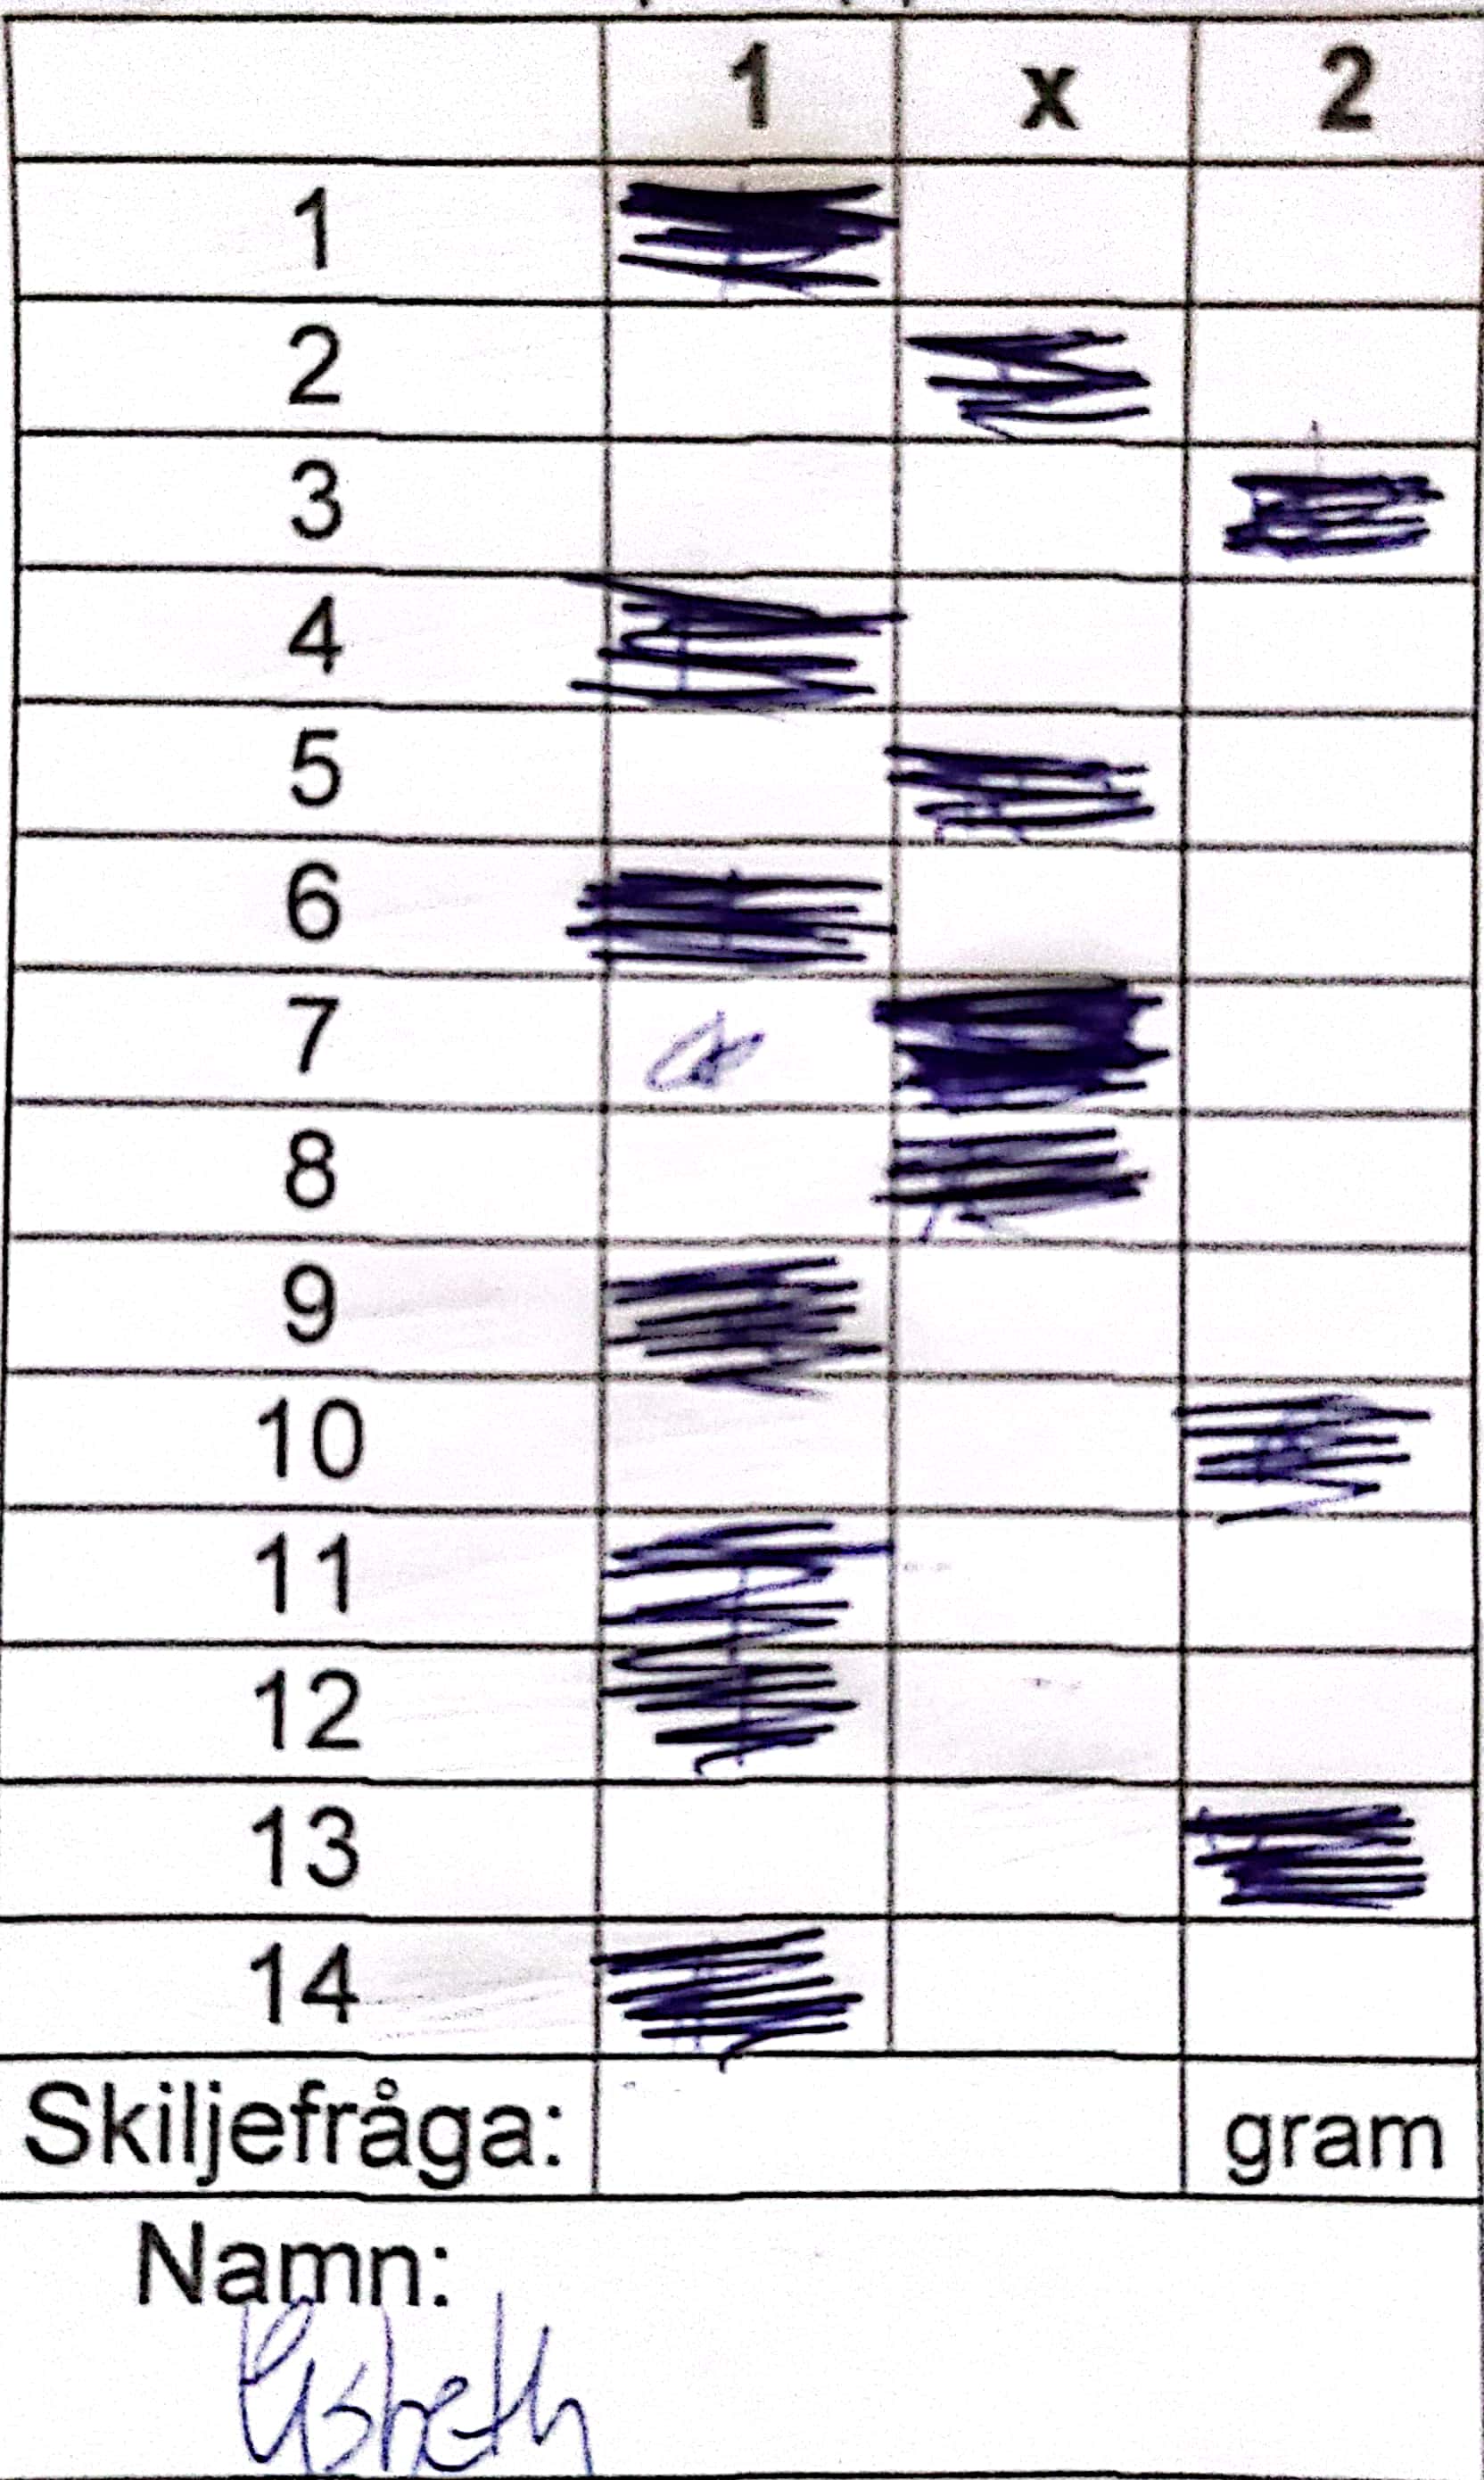 1 x 2
1
2
3
4
5
6
7
8
9
10
11
12
13
14
Skiljefråga: gram
Namn:
Lisbeth